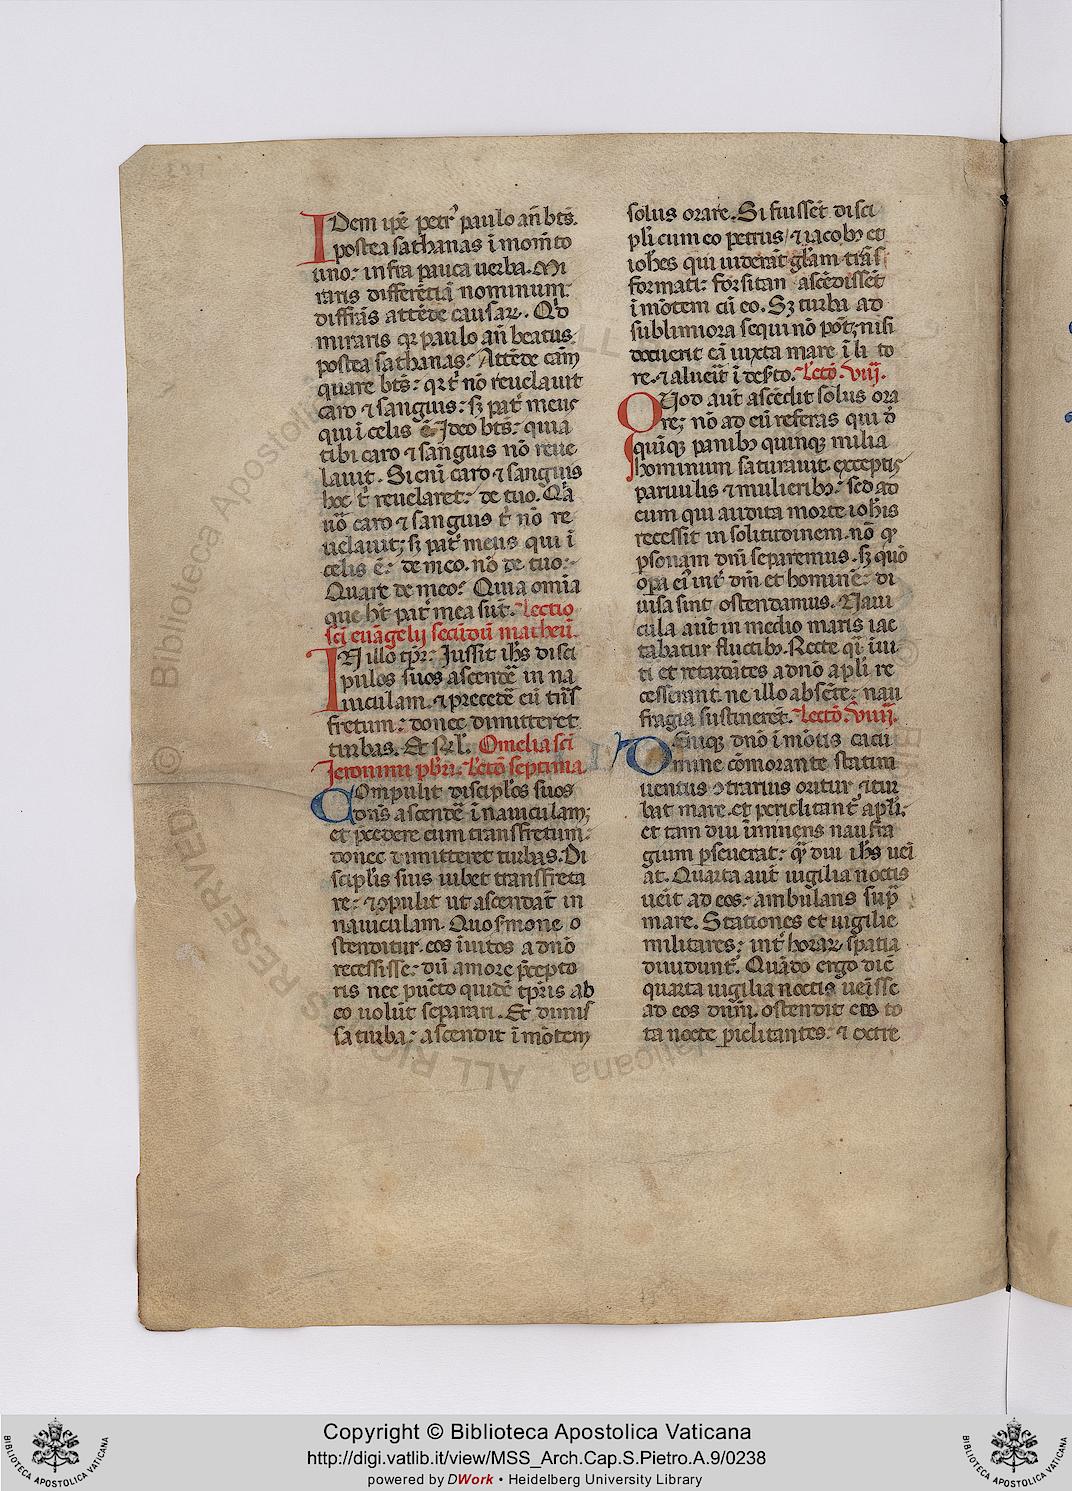 IDem ip̅e petrꝰ paulo an̅ bt̅s.
postea sathanas i̅ mom̅to
uno: infra pauca uerba. Mi
raris differe̅tia̅ nominum:
diffr̅as atte̅de causaꝝ. Qd̕
miraris qꝛ paulo an̅ beatus
postea sathanas: Atte̅de ca̅m
quare bt̅s: qꝛ t̕ no̅ reuelauit
caro ⁊ sanguis: sꝫ pat̕ meus
qui i̅ celis e̅. Ideo bt̅s: quia
tibi caro ⁊ sanguis no̅ reue
lauit. Si eni̅ caro ⁊ sanguis
hoc t̕ reuelaret: de tuo. Qa̅
uo̅ caro ⁊ sanguis t̕ no̅ re
uelauit; sꝫ pat̕ meus qui i̅
celis e̅: de meo. no̅ de tuo:
Quare de meo: Quia omi̅a
que ht̅ pat̕ mea su̅t. Lectio
sc̅i eua̅gelij secu̅du̅ matheu̅.
IN illo tp̅r: Jussit ih̅s disci
pulos suos ascende̅ in na
uiculam. ⁊ precede̅ eu̅ tn̅s
fretum: donec dimitteret
turbas. Et rl̅. Omelia sc̅i
Jeronimi pb̅ri. lect̅o septima
COmpulit discipl̅os suos
dn̅s ascende̅ i̅ nauiculam;
et p̅cedere eum transfretum:
donec dimitteret turbas. Di
scipl̅is suis iubet transfreta
re: ⁊ ꝯpulit ut ascenda̅t in
nauiculam. Quo s̕mone o
stenditur. eos i̅uitos a dn̅o
recessisse: du̅ amore p̅cepto
ris nec pu̅cto quide̅ tp̅ris ab
eo uolu̅t separari. Et dimis
sa turba: ascendit i̅ mo̅tem
solus orare. Si fuisse̅t disci
pl̅i cum eo petrus. ⁊ iacobꝰ et
ioh̅es qui uidera̅t gl̅iam tra̅s
formati: forsitan asce̅disse̅t
i̅ mo̅tem cu̅ eo. Sꝫ turba ad
sublimiora sequi no̅ po̅t; nisi
docuerit ea̅ iuxta mare i̅ li to
re. ⁊ alueri̅t i̅ des̕to. lect̅o. viij.
QUod aut̅ asce̅dit solus ora
re; no̅ ad eu̅ referas qui d̕
qui̅qꝫ panibꝰ quinqꝫ milia
hominum saturauit. exceptis
paruulis ⁊ mulieribꝰ: sed ad
eum qui audita morte ioh̅is
recessit in solitudinem. no̅ ꝙ
p̱sonam dn̅i separemus. sꝫ quo̅
op̱a eiꝰ int̕ dm̅ et homine̅: di
uisa sint ostendamus. Naui
cula aut̅ in medio maris iac
tabatur fluctibꝰ. Recte qi̅ i̅ui
ti et retarda̅tes a dn̅o apl̅i re
cesserant. ne illo abse̅te: nau
fragia sustinere̅t. lect̅o. viiij.
DEniqꝫ dn̅o i̅ mo̅tis cacu
mine co̅morante. statim
uentus ꝯtrarius oritur ⁊ tur
bat mare. et periclitant̕ apl̅i:
et tam diu i̅minens naufra
gium p̱seuerat: qa̅ diu ih̅s uei̅
at. Quarta aut̅ uigilia noctis
ueit̅ ad eos: ambulans sup̱
mare. Stationes et uigilie
militares: int̕ horaꝝ spatia
diuidunt̕. Qua̅do ergo dic̅
quarta uigilia noctis uei̅sse
ad eos dn̅m. ostendit eos to
ta nocte p̱iclitantes: ⁊ extre
Copyright © Biblioteca Apostolica Vaticana
http://digi.vatlib.it/view/MSS_Arch.Cap.S.Pietro.A.9/0238
powered by DWork • Heidelberg University Library